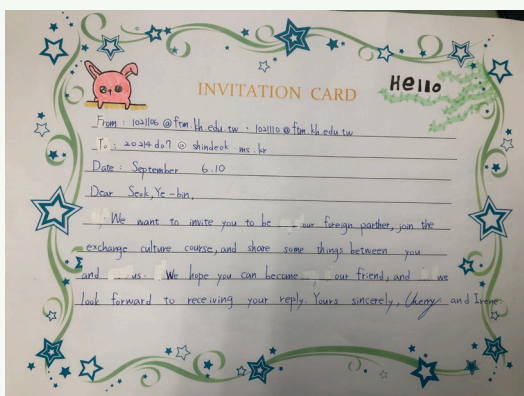 Hello
INVITATION CARD
From : 1021106 @ ftm.kh.edu.tw 、 1021110 @ ftm.kh.edu.tw
To : 20214d07 @ shindeok.ms.kr
Date : September 6.10
Dear Seok, Ye-bin,
We want to invite you to be our foreign parther, join the
exchange culture course, and share some things between you
and us. We hope you can become our friend, and we
look forward to receiving your reply. Yours sincerely, Cherry and Irene